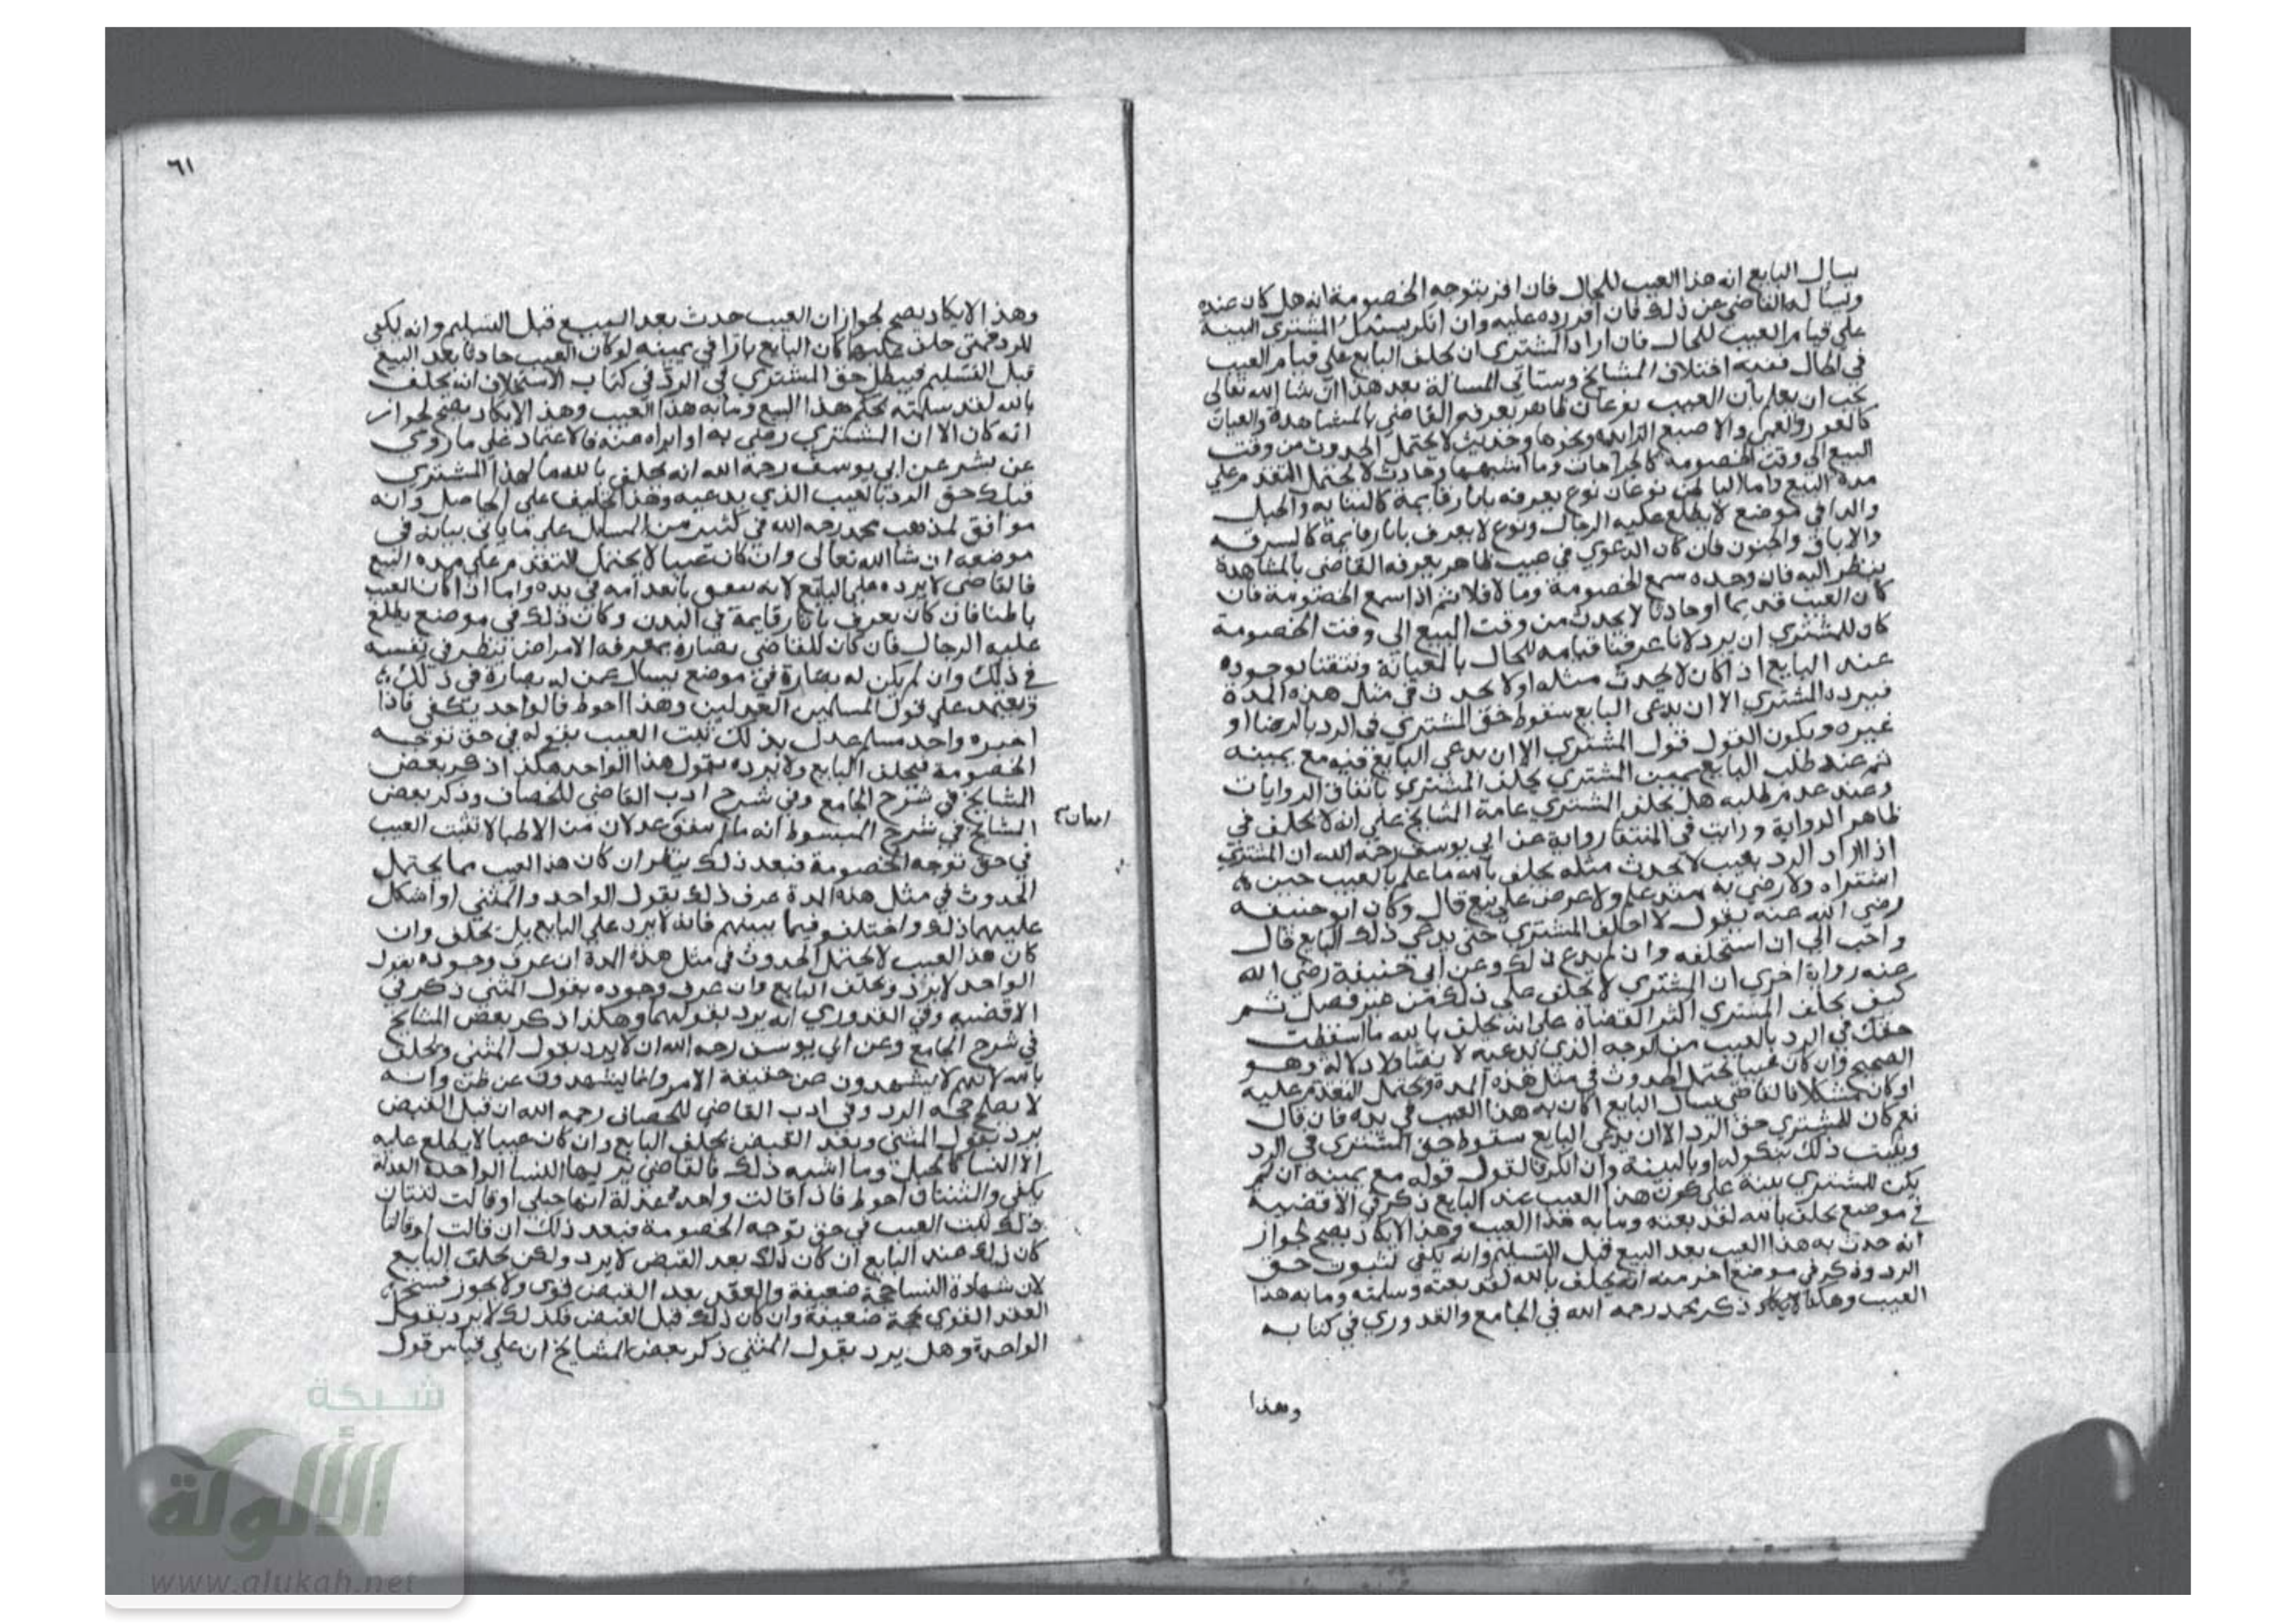 يسأل البايع انه هذا العيب للحال فان اقر يتوجه الخصومة انه هل كان عنده
ويسأله القاضي عن ذلك فان اقر رده عليه وان انكر يسئل المشتري البينة
على قيام العيب للحال فان اراد المشتري ان يحلف البايع على قيام العيب
في الحال ففيه اختلاف المشايخ وستاتي المسالة بعد هذا ان شا الله تعالى
يجب ان يعلم بان العيب نوعان ظاهر يعرفه القاضي بالمشاهدة والعيان
كالعور والعمى والاصبع الزايدة ونحوها وحديث لا يحتمل الحدوث من وقت
البيع الى وقت الخصومة كالجراحات وما اشبهها وحادث لا يحتمل التقدم على
مدة البيع واما الباطن نوعان نوع يعرف باثار قايمة كالثيابه والحبل
والدا في موضع لا يطلع عليه الرجال ونوع لا يعرف باثار قايمة كالسرقه
والاباق والجنون فان كان الدعوي في عيب ظاهر يعرفه القاضي بالمشاهدة
ينظر اليه فان وجده سمع الخصومة وما لا فلا ثم اذا سمع الخصومة فان
كان العيب قديما او حادثا لا يحدث من وقت البيع الى وقت الخصومة
كان للمشتري ان يرد لانا عرفنا قيامه للحال بالعيانة وتيقنا بوجوده
عند البايع اذا كان لا يحدث مثله او لا يحدث في مثل هذه المدة
فيرده المشتري الا ان يدعى البايع سقوط حق المشتري في الرد بالرضا او
غيره ويكون القول قول المشتري الا ان يدعى البايع فيه مع يمينه
ثم عند طلب البايع يمين المشتري يحلف المشتري باتفاق الروايات
وعند عدم طلبه هل يحلف المشتري عامة المشايخ على انه لا يحلف في
ظاهر الرواية ورايت في المنتقا رواية عن ابي يوسف رحمه الله ان المشتري
اذا اراد الرد بعيب لا يحدث مثله يحلف بالله ما علم بالعيب حين
اشتراه ولا رضي به منذ علم ولا عرض على بيع قال وكان ابو حنيفه
رضي الله عنه يقول لا احلف المشتري حتى يدعي ذلك البايع قال
واحب الي ان استحلفه وان لم يدع ذلك وعن ابي حنيفة رضي الله
عنه رواية اخرى ان المشتري لا يحلف على ذلك من غير فصل ثم
كيف يحلف المشتري اكثر القضاة على انه يحلف بالله ما اسقطت
حقك في الرد بالعيب من الوجه الذي يدعيه لا دلالة وهو
الصحيح وان كان عيبا يحتمل الحدوث في مثل هذه المدة ويحتمل التقدم عليه
او كان مشكلا فالقاضي يسال البايع اكان به هذا العيب في يده فان قال
نعم كان للمشتري حق الرد الا ان يدعى البايع سقوط حق المشتري في الرد
ويثبت ذلك بنكوله او بالبينة وان انكر فالقول قوله مع يمينه ان لم
يكن للمشتري بينة على كون هذا العيب عند البايع ذكر في الاقضية
في موضع يحلف بالله لقد بعته وما به هذا العيب وهذا الايكاد يصح لجواز
انه حدث به هذا العيب بعد البيع قبل التسليم وانه يكفي لثبوت حق
الرد وذكر في موضع اخر منه انه يحلف بالله لقد بعته وسلمته وما به هذا
العيب وهكذا ذكر محمد رحمه الله في الجامع والقدوري في كتابه
وهذا
٦١
وهذ الايكاد يصح لجواز ان العيب حدث بعد البيع قبل التسليم وانه يكفي
للرد فمتى حلف كان البايع بارا في يمينه لو كان العيب حادثا بعد البيع
قبل التسليم فيبطل حق المشتري في الرد في كتاب الاستحلاف انه يحلف
بالله لقد سلمته بحكم هذا البيع وما به هذا العيب وهذ الايكاد يصح لجواز
انه كان الا ان المشتري رضى به او ابراه منه فالاعتماد على ما روي
عن بشر عن ابي يوسف رحمه الله انه يحلف بالله ما لهذا المشتري
قبلك حق الرد بالعيب الذي يدعيه وهذا التحليف على الحاصل وانه
موافق لمذهب محمد رحمه الله في كثير من المسايل على ما ياتي بيانه في
موضعه ان شا الله تعالى وان كان عيبا لا يحتمل التقدم على مدة البيع
فالقاضي لا يرده على البايع لانه في يده واما اذا كان العيب
باطنا فان كان يعرف باثار قايمة في البدن وكان ذلك في موضع يطلع
عليه الرجال فان كان للقاضي بصارة بمعرفة الامراض ينظر في نفسه
في ذلك وان لم يكن له بصارة في موضع يسال عمن له بصارة في ذلك
ويعتمد على قول المسلمين العدلين وهذا احوط فالواحد يكفي فاذا
اخبره واحد مسلم عدل بذلك ثبت العيب بقوله في حق توجه
الخصومة فيحلف البايع ولا يرده بقول هذا الواحد هكذا ذكر بعض
المشايخ في شرح الجامع وفي شرح ادب القاضي للخصاف وذكر بعض
المشايخ في شرح المبسوط انه ما لم يتفق عدلان من الاطبا لا يثبت العيب
في حق توجه الخصومة فبعد ذلك ينظر ان كان هذا العيب مما يحتمل
الحدوث في مثل هذه المدة عرف ذلك بقول الواحد والمثنى او اشكل
عليهما ذلك واختلفو فيما بينهم فانه لا يرد على البايع بل يحلف وان
كان هذا العيب لا يحتمل الحدوث في مثل هذه المدة ان عرف وجوده بقول
الواحد لا يرد ويحلف البايع وان عرف وجوده بقول المثنى ذكر في
الاقضيه وفي القدوري انه يرد بقولهما وهكذا ذكر بعض المشايخ
في شرح الجامع وعن ابي يوسف رحمه الله ان لا يرد بقول المثنى ويحلف
بالله لانهم لا يشهدون عن حقيقة الامر وانما يشهدون عن ظن وانه
لا يصلح حجه الرد وفي ادب القاضي للخصاف رحمه الله ان قبل القبض
يرد بقول المثنى وبعد القبض يحلف البايع وان كان عيبا لا يطلع عليه
الا النسا كالحبل وما اشبه ذلك فالقاضي يريها النسا الواحدة العدلة
يكفي والثنتان احوط فاذا قالت واحدة عدلة انها حبلى او قالت ثنتان
ذلك ثبت العيب في حق توجه الخصومة فبعد ذلك ان قالت او قالتا
كان ذلك عند البايع ان كان ذلك بعد القبض لا يرد ولكن يحلف البايع
لان شهادة النسا حجة ضعيفة والعقد بعد القبض قوى ولا يجوز فسخ
العقد القوي بحجة ضعيفة وان كان ذلك قبل القبض فكذلك لا يرد بقول
الواحدة وهل يرد بقول المثنى ذكر بعض المشايخ ان على قياس قول
شبكة
الألوكة
www.alukah.net